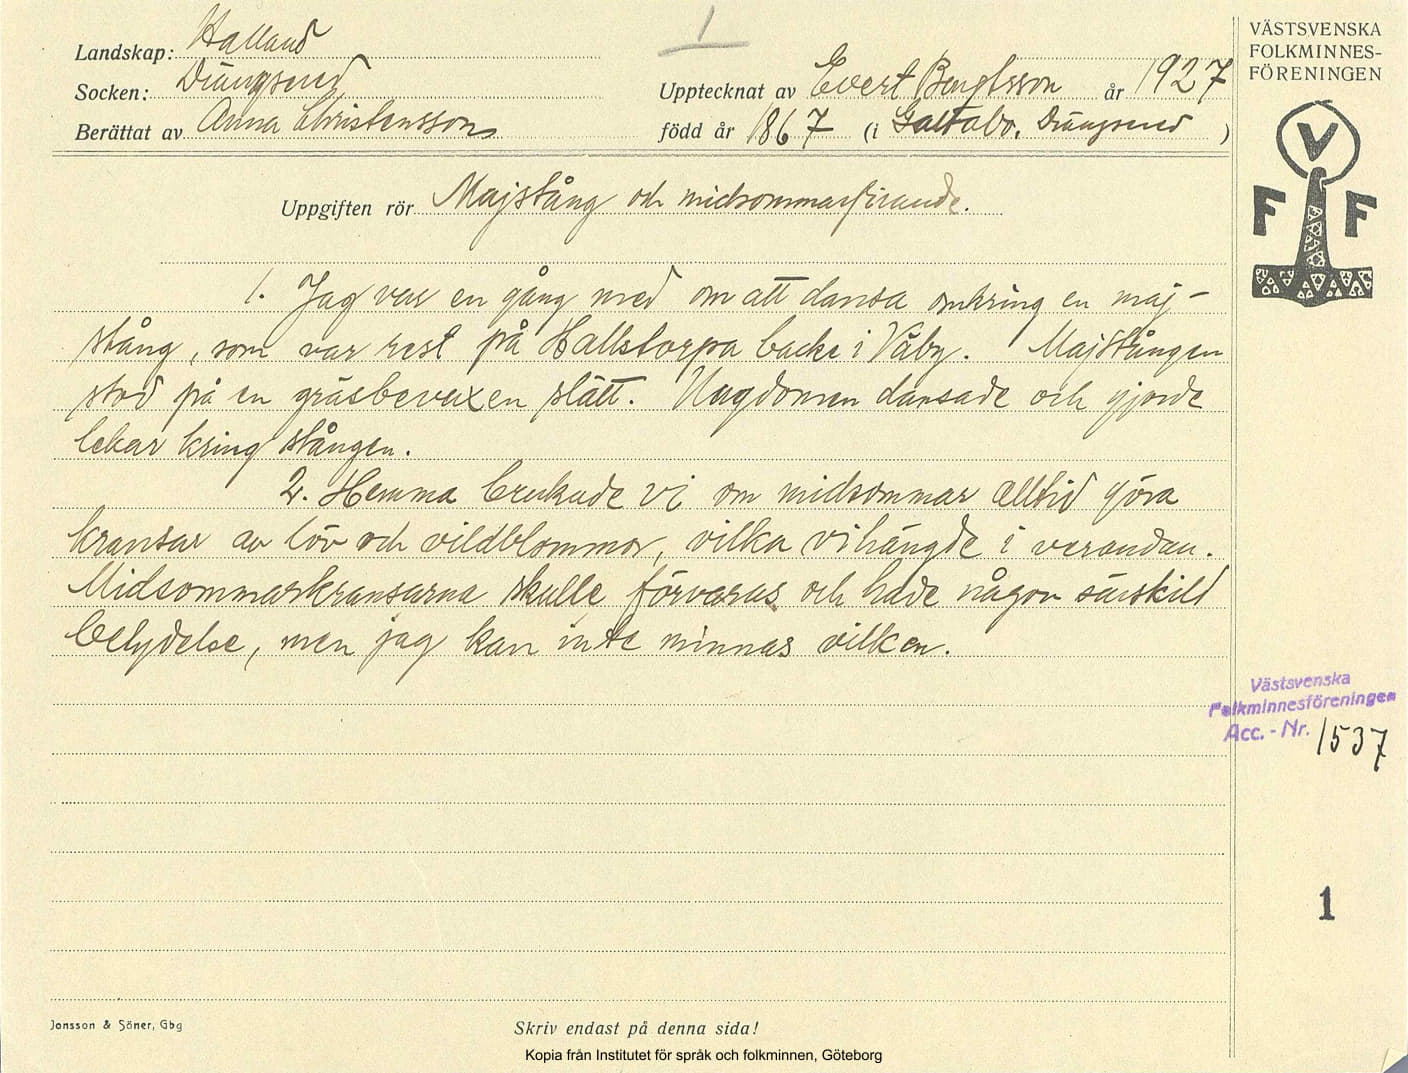 1
Landskap: Halland
Socken: Drängsered
Berättat av Anna Christensson
Upptecknat av Evert Bengtsson år 1927
född år 1867 (i Galtabo, Drängsered )
VÄSTSVENSKA
FOLKMINNES-
FÖRENINGEN
V
F F
Uppgiften rör Majstång och midsommarfirande.
1. Jag var en gång med om att dansa omkring en maj-
stång, som var rest på Hallstorpa backe i Våby. Majstången
stod på en gräsbevaxen slätt. Ungdomen dansade och gjorde
lekar kring stången.
2. Hemma brukade vi om midsommar alltid göra
kransar av löv och vildblommor, vilka vi hängde i verandan.
Midsommarkransarna skulle förvaras och hade någon särskild
betydelse, men jag kan inte minnas vilken.
Västsvenska
Folkminnesföreningen
Acc. - Nr. 1537
1
Jonsson & Söner, Gbg
Skriv endast på denna sida!
Kopia från Institutet för språk och folkminnen, Göteborg